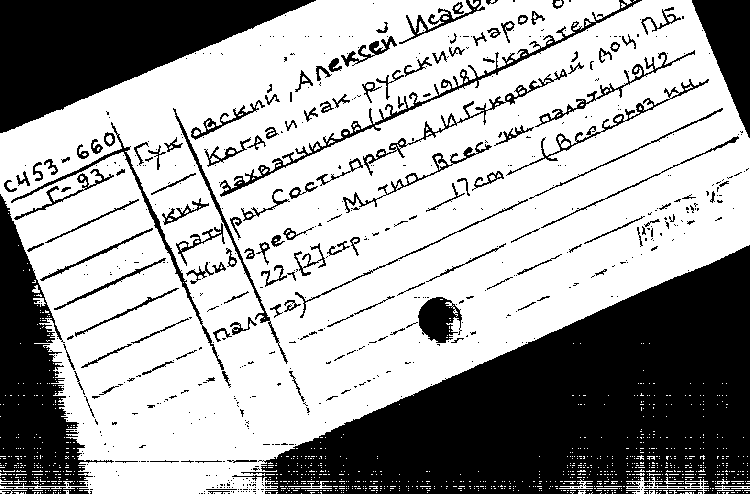 С453-660
Г-93
Гуковский, Алексей Исаев
Когда и как русский народ
ких захватчиков (1242-1918). Указатель
ратуры. Сост.: проф. А.И. Гуковский, доц. П.Б.
Жибарев М., тип. Всес. кн. палаты, 1942
22, [2] стр. 17cm. (Всесоюз кн.
палата)